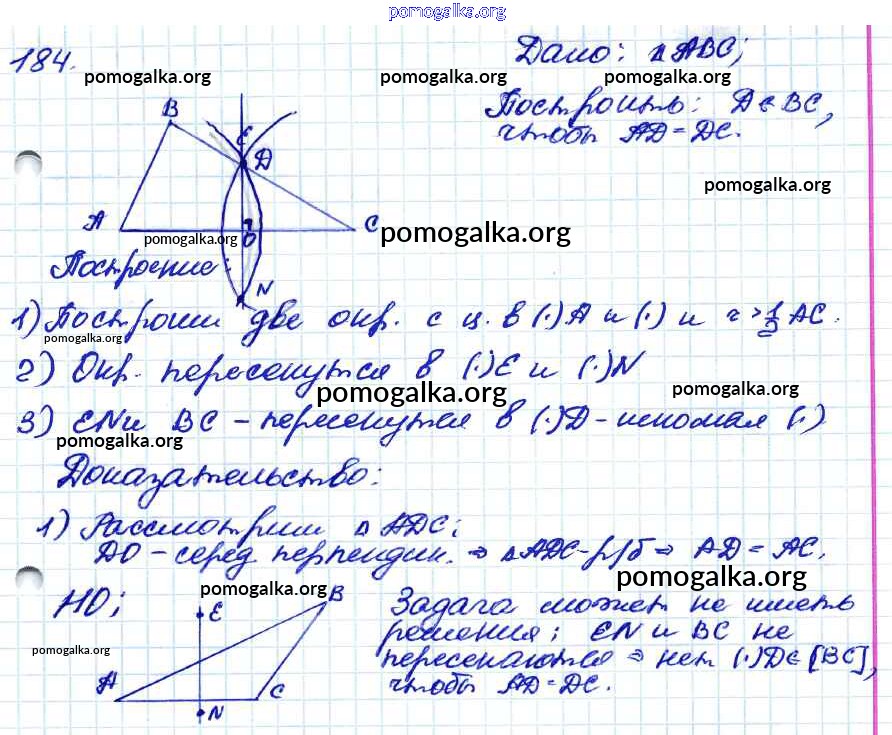 pomogalka.org
184.
Дано: △ABC;
pomogalka.org pomogalka.org pomogalka.org
Построить: D∈BC,
чтобы AD=DC.
B
E
D
pomogalka.org
A
C
pomogalka.org
pomogalka.org
O
Построение:
N
1) Построим две окр. с ц. в (·)A и (·) и r > 1/2 AC.
pomogalka.org
2) Окр. пересекутся в (·)E и (·)N
pomogalka.org
pomogalka.org
3) EN и BC – пересекутся в (·)D – искомая (·)
pomogalka.org
Доказательство:
1) Рассмотрим △ADC:
DO – серед. перпендик. ⇒ △ADC – р/б ⇒ AD = AC.
pomogalka.org
pomogalka.org
НО;
E
B
Задача может не иметь
решения; EN и BC не
pomogalka.org
пересекаются ⇒ нет (·)D∈[BC],
чтобы AD=DC.
A
C
N